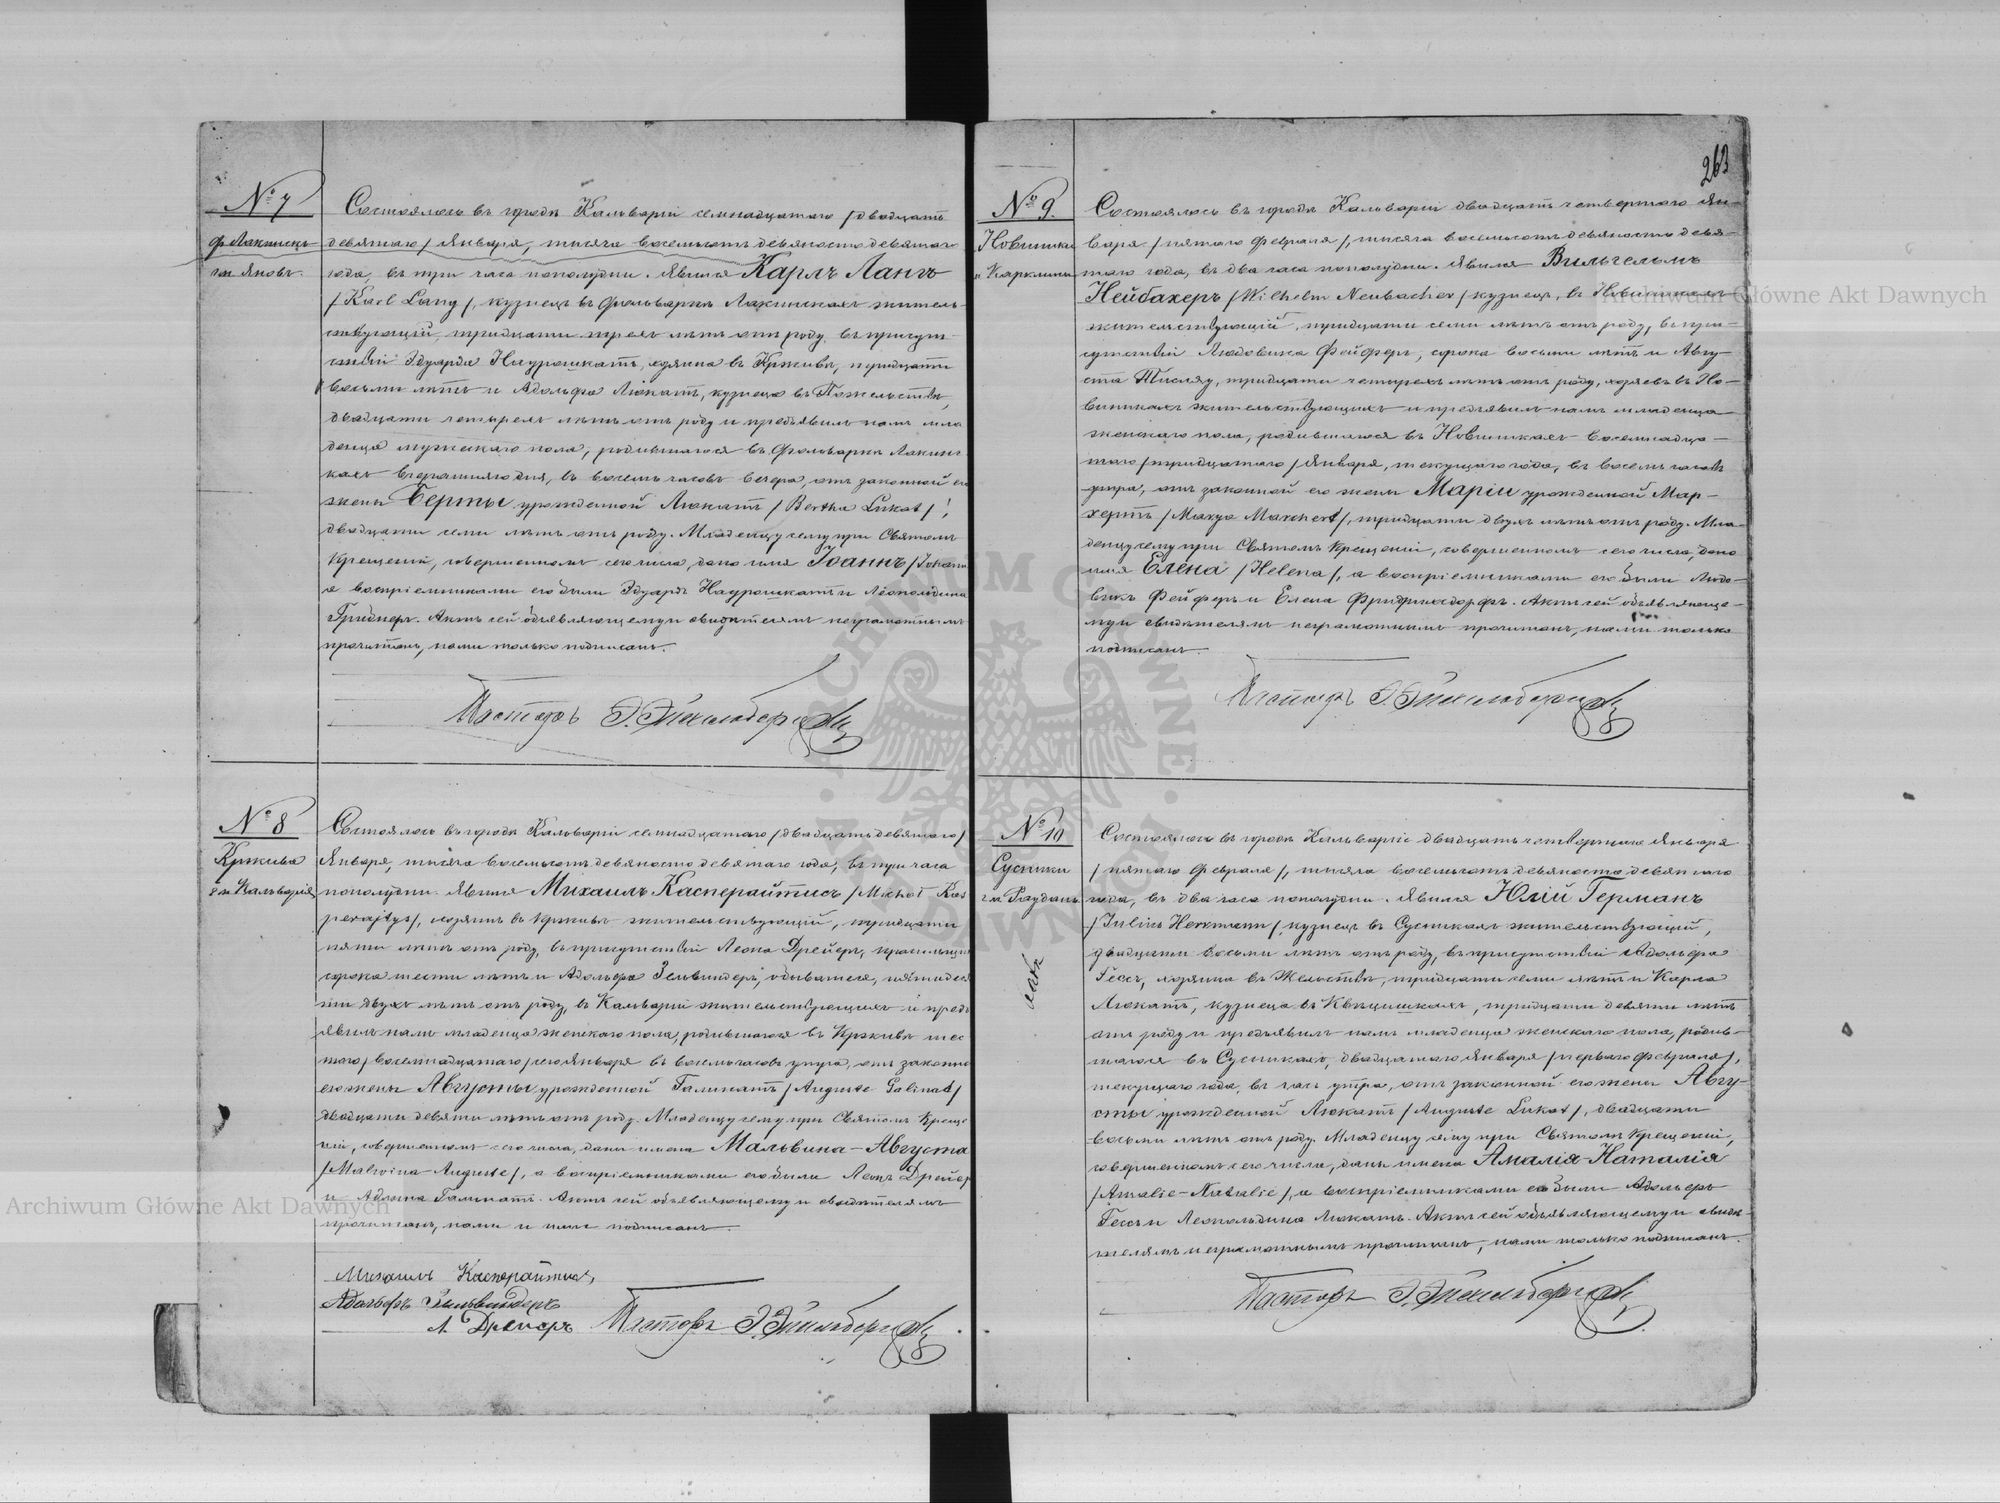 263
№ 7
ф. Лакинск
гм. Яновъ.
Состоялось въ городѣ Кальваріи семнадцатаго /двадцать
девятаго/ Января, тысяча восемьсотъ девяносто девятаго
года, въ три часа пополудни. Явился Карлъ Лангъ
/Karl Lang/, кузнецъ въ фольваркѣ Лакинскахъ житель-
ствующій, тридцати трехъ лѣтъ отъ роду, въ присут-
ствіи Эдуарда Наурошкатъ, хозяина въ Крживѣ, тридцати
восьми лѣтъ и Адольфа Люкатъ, кузнеца въ
двадцати четырехъ лѣтъ отъ роду и предъявилъ намъ мла
денца мужескаго пола, родившагося въ фольваркѣ Лакинс
кахъ вчерашняго дня, въ восемь часовъ вечера, отъ законной его
жены Берты урожденной Люкатъ /Bertha Lukat/,
двадцати семи лѣтъ отъ роду. Младенцу сему при Святомъ
Крещеніи, совершенномъ сего числа, дано имя Іоаннъ /Johann
а воспріемниками его были Эдуардъ Наурошкатъ и Леопольдина
Актъ сей объявляющему и свидѣтелямъ неграмотнымъ
прочитанъ, нами только подписанъ.
Пасторъ Э.
№ 8
Крживa
гм. Кальварія
Состоялось въ городѣ Кальваріи семнадцатаго /двадцать девятаго/
Января, тысяча восемьсотъ девяносто девятаго года, въ три часа
пополудни. Явился Михаилъ Касперайтисъ /Michał Kas
perajtys/, хозяинъ въ Крживѣ жительствующій, тридцати
пяти лѣтъ отъ роду, въ присутствіи Леона Дрейеръ, красильщи
сорока шести лѣтъ и Адольфа Зильвиндеръ, обывателя, пятидеся
ти двухъ лѣтъ отъ роду, въ Кальваріи жительствующихъ и предъ
явилъ намъ младенца женскаго пола, родившагося въ Крживѣ шес
таго /восемнадцатаго/ сего Января въ восемь часовъ утра, отъ законно
его жены Августы урожденной Галинатъ /Auguste Galinat/
двадцати девяти лѣтъ отъ роду. Младенцу сему при Святомъ Креще
ніи, совершенномъ сего числа, даны имена Мальвина-Августа
/Malwina-Auguste/, а воспріемниками его были Леонъ Дрейер
и Адлина Галинатъ. Актъ сей объявляющему и свидѣтелямъ
прочитанъ, нами и ими подписанъ.
Михаилъ Касперайтисъ,
Адольфъ Зильвиндеръ
Л. Дрейеръ
Пасторъ Э.
№ 9.
Новиники
г. Карклины
Состоялось въ городѣ Кальваріи двадцать четвертаго Ян-
варя /пятаго Февраля/, тысяча восемьсотъ девяносто девя-
таго года, въ два часа пополудни. Явился Вильгельмъ
Нейбахеръ /Wilhelm Neubacher/ кузнецъ, въ Новиникахъ
жительствующій, тридцати семи лѣтъ отъ роду, въ при-
сутствіи Людовика Фейферъ, сорока восьми лѣтъ и Авгу-
ста тридцати четырехъ лѣтъ отъ роду, хозяевъ въ Но-
виникахъ жительствующихъ и предъявилъ намъ младенца
женскаго пола, родившагося въ Новиникахъ восемнадца-
таго /тридцатаго/ Января, текущаго года, въ восемь часовъ
утра, отъ законной его жены Маріи урожденной Мар-
хертъ /Marya Marchert/, тридцати двухъ лѣтъ отъ роду. Мла-
денцу сему при Святомъ Крещеніи, совершенномъ сего числа, дано
имя Елена /Helena/, а воспріемниками его были Людо-
викъ Фейферъ и Елена Фридрихсдорфъ. Актъ сей объявляюще-
му и свидѣтелямъ неграмотнымъ прочитанъ, нами только
подписанъ.
Пасторъ Э.
№ 10
Сусники
гм. Раудань
Состоялось въ городѣ Кальваріи двадцать четвертаго Января
/пятаго Февраля/, тысяча восемьсотъ девяносто девятаго
года, въ два часа пополудни. Явился Юлій Германъ
/Julius Herrmann/, кузнецъ въ Сусникахъ жительствующій,
двадцати восьми лѣтъ отъ роду, въ присутствіи Адольфа
Гессъ, хозяина въ тридцати семи лѣтъ и Карла
Люкатъ, кузнеца въ тридцати девяти лѣтъ
отъ роду и предъявилъ намъ младенца женскаго пола, родив-
шагося въ Сусникахъ, двадцатаго Января /перваго Февраля/,
текущаго года, въ часъ утра, отъ законной его жены Авгу-
сты урожденной Люкатъ /Auguste Lukat/, двадцати
восьми лѣтъ отъ роду. Младенцу сему при Святомъ Крещеніи,
совершенномъ сего числа, даны имена Амалія-Наталія
/Amalie-Natalie/, а воспріемниками его были Адольфъ
Гессъ и Леопольдина Люкатъ. Актъ сей объявляющему и свидѣ-
телямъ неграмотнымъ прочитанъ, нами только подписанъ.
Пасторъ Э.
Archiwum Główne Akt Dawnych
Archiwum Główne Akt Dawnych
ARCHIWUM GŁÓWNE AKT DAWNYCH